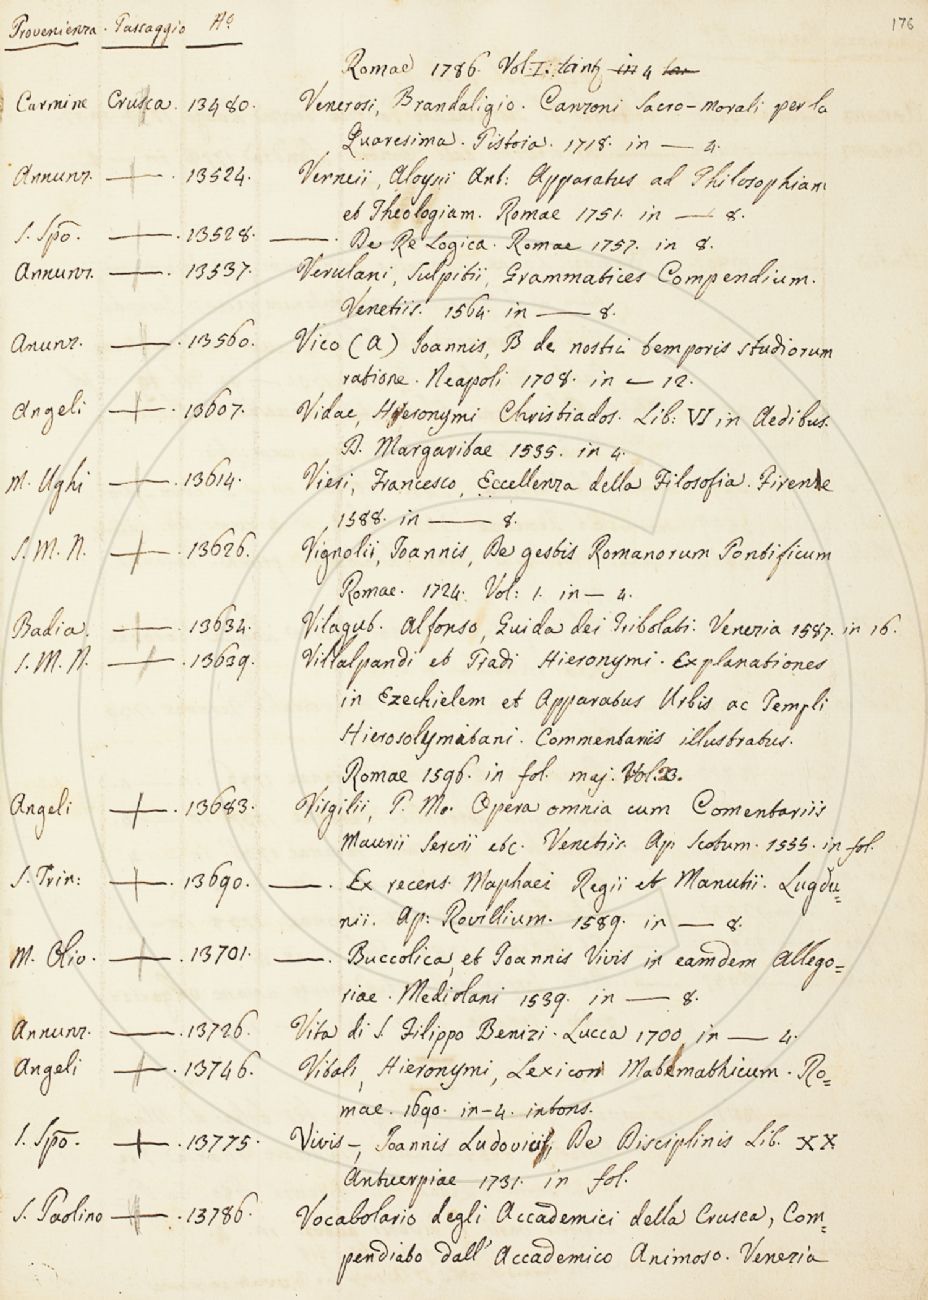 Provenienza. Passaggio No 176
Romae 1786. Vol. I. in 4
Carmine Crusca. 13480. Venerosi, Brandaligio. Canzoni Sacro-morali per la
Quaresima. Pistoia. 1718. in — 4.
Annunz. — . 13524. Verneii, Aloysii Ant: Apparatus ad Philosophiam
et Theologiam. Romae 1751. in — 8.
S. Spō. — . 13528. — . De Re Logica. Romae 1757. in 8.
Annunz. — . 13537. Verulani, Sulpitii, Grammatices Compendium.
Venetiis. 1564. in — 8.
Anunz. — . 13560. Vico (a) Ioannis, B de nostri temporis studiorum
ratione. Neapoli 1708. in — 12.
Angeli — . 13607. Vidae, Hieronymi Christiados. Lib: VI in Aedibus.
D. Margaritae 1535. in 4.
M. Ughi — . 13614. Vieri, Francesco, Eccellenza della Filosofia. Firenze
1588. in — 8.
S. M. N. — . 13626. Vignolii, Ioannis, De gestis Romanorum Pontificum
Romae. 1724. Vol: 1. in — 4.
Badia. — . 13634. Vilagut. Alfonso, Guida dei Tribolati. Venezia 1587. in 16.
S. M. N. — . 13639. Villalpandi et Pradi Hieronymi. Explanationes
in Ezechielem et Apparatus Urbis ac Templi
Hierosolymitani. Commentariis illustratus.
Romae 1596. in fol. maj. Vol. 3.
Angeli — . 13683. Virgilii, P. Mo. Opera omnia cum Comentariis
Maurii Servii etc. Venetiis. Ap. Scotum. 1555. in fol.
S. Trin: — . 13690. — . Ex recens. Maphaei Regii et Manutii. Lugdu=
nii. Ap: Rovillium. 1589. in — 8.
M. Olio. — . 13701. — . Buccolica, et Ioannis Vivis in eamdem Allego=
riae. Mediolani 1539. in — 8.
Annunz. — . 13726. Vita di S. Filippo Benizi. Lucca 1700. in — 4.
Angeli — . 13746. Vitali, Hieronymi, Lexicon Mathemathicum. Ro=
mae. 1690. in-4. intons.
S. Spō. — . 13775. Vivis-, Ioannis Ludovici, De Disciplinis Lib. XX
Antuerpiae 1731. in fol.
S. Paolino — . 13786. Vocabolario degli Accademici della Crusca, Com=
pendiato dall' Accademico Animoso. Venezia